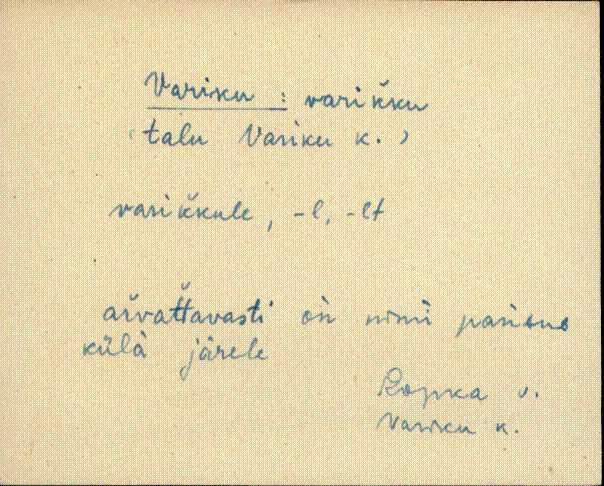 Variku : varik̆ku
(talu Variku k.)
varik̆kule, -l, -lt
ar̆vat̆tavasti oǹ nimi
külà järele
Ropka v.
Variku k.